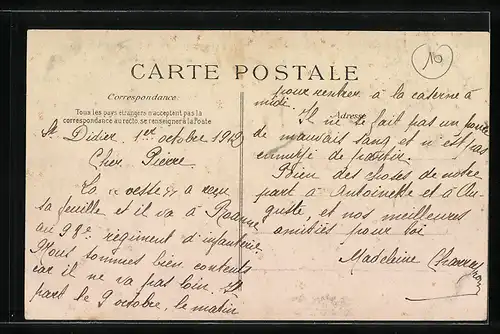 10
CARTE POSTALE
Correspondance
Tous les pays étrangers n'acceptent pas la
correspondance au recto. se renseigner à la Poste
St Didier, 1er octobre 1912
Cher Pierre
a reçu
sa feuille et il va à Roanne
au 99e régiment d'infanterie
Nous sommes bien contents
car il ne va pas loin. Il
part le 9 octobre, le matin
pour rentrer à la caserne à
midi.
Adresse
Il ne se fait pas un
de mauvais sang et n'est pas
ennuyé de partir.
Bien des choses de notre
part à Antoinette et à Au-
guste, et nos meilleures
amitiés pour toi
Madeleine